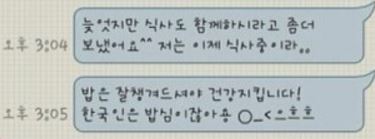 늦엇지만 식사도 함께하시라고 좀더
보냈어요^^ 저는 이제 식사중이라,,
오후 3:04
밥은 잘챙겨드셔야 건강지킵니다!
한국인은 밥심이잖아용 O_<으흐흐
오후 3:05